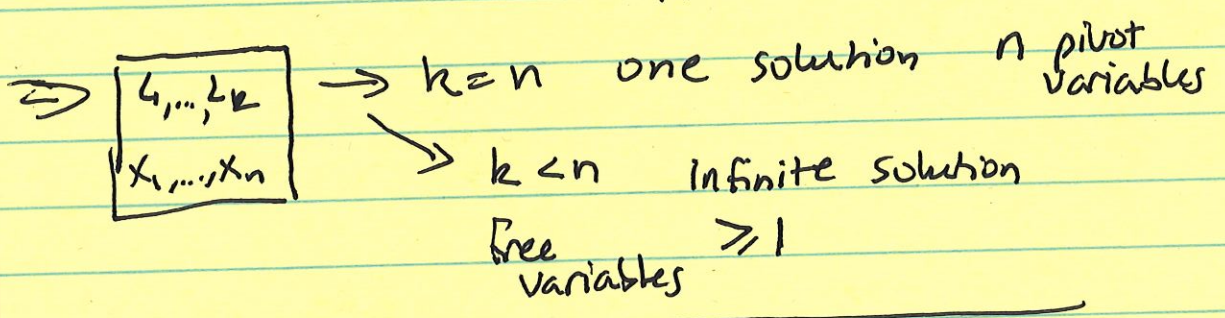 ⇒ L₁,...,L_k → k=n one solution n pivot variables
x₁,...,xₙ → k<n infinite solution
Free variables ⩾1